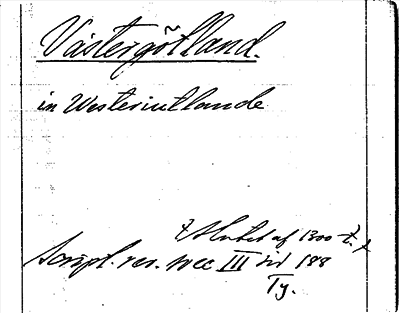 Västergötland.
in Westeriutlande
Slutet af 1300-t.
Script. rer. svec III sid 188
Ty.